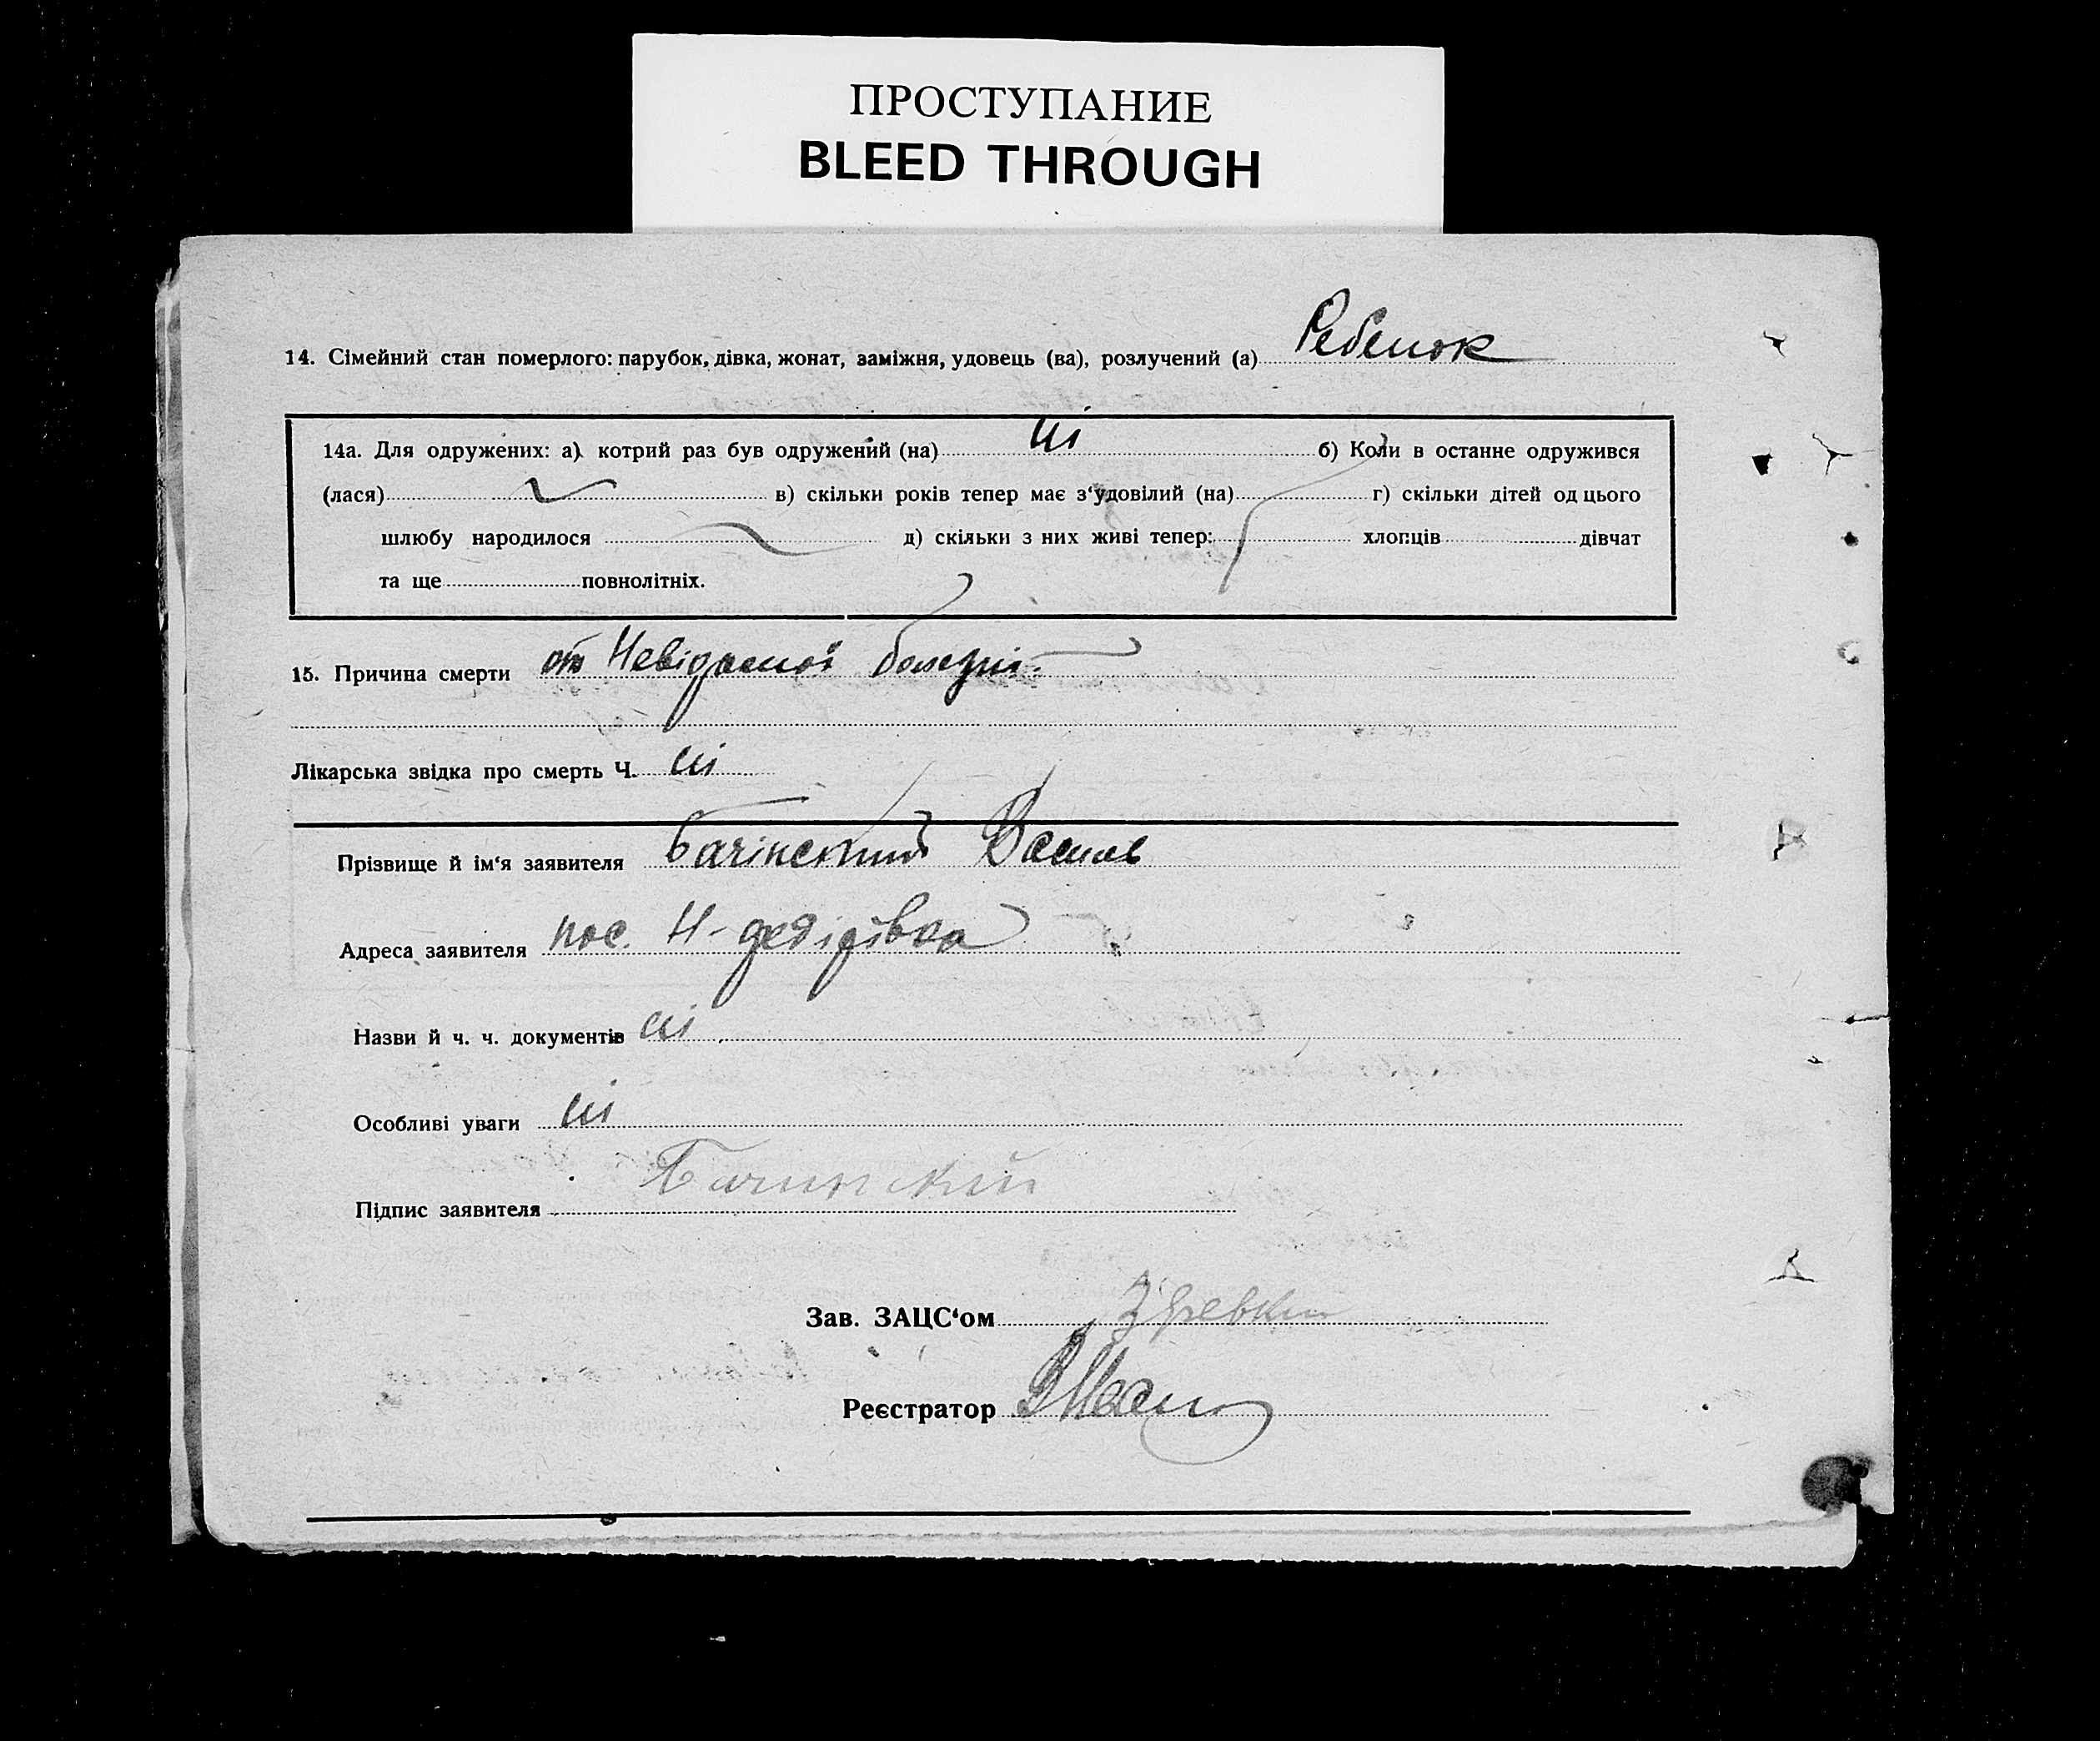 ПРОСТУПАНИЕ
BLEED THROUGH
14. Сімейний стан померлого: парубок, дівка, жонат, заміжня, удовець (ва), розлучений (а) Ребенок
14а. Для одружених: а) котрий раз був одружений (на) б) Коли в останнє одружився
(лася) в) скільки років тепер має з‘удовілий (на) г) скільки дітей од цього
шлюбу народилося д) скільки з них живі тепер: хлопців дівчат
та ще повнолітніх.
15. Причина смерти от Невідомої болезні.
Лікарська звідка про смерть Ч.
Прізвище й ім‘я заявителя Бачінский
Адреса заявителя пос.
Назви й ч. ч. документів
Особливі уваги
Підпис заявителя Бачинский
Зав. ЗАЦС‘ом
Реєстратор